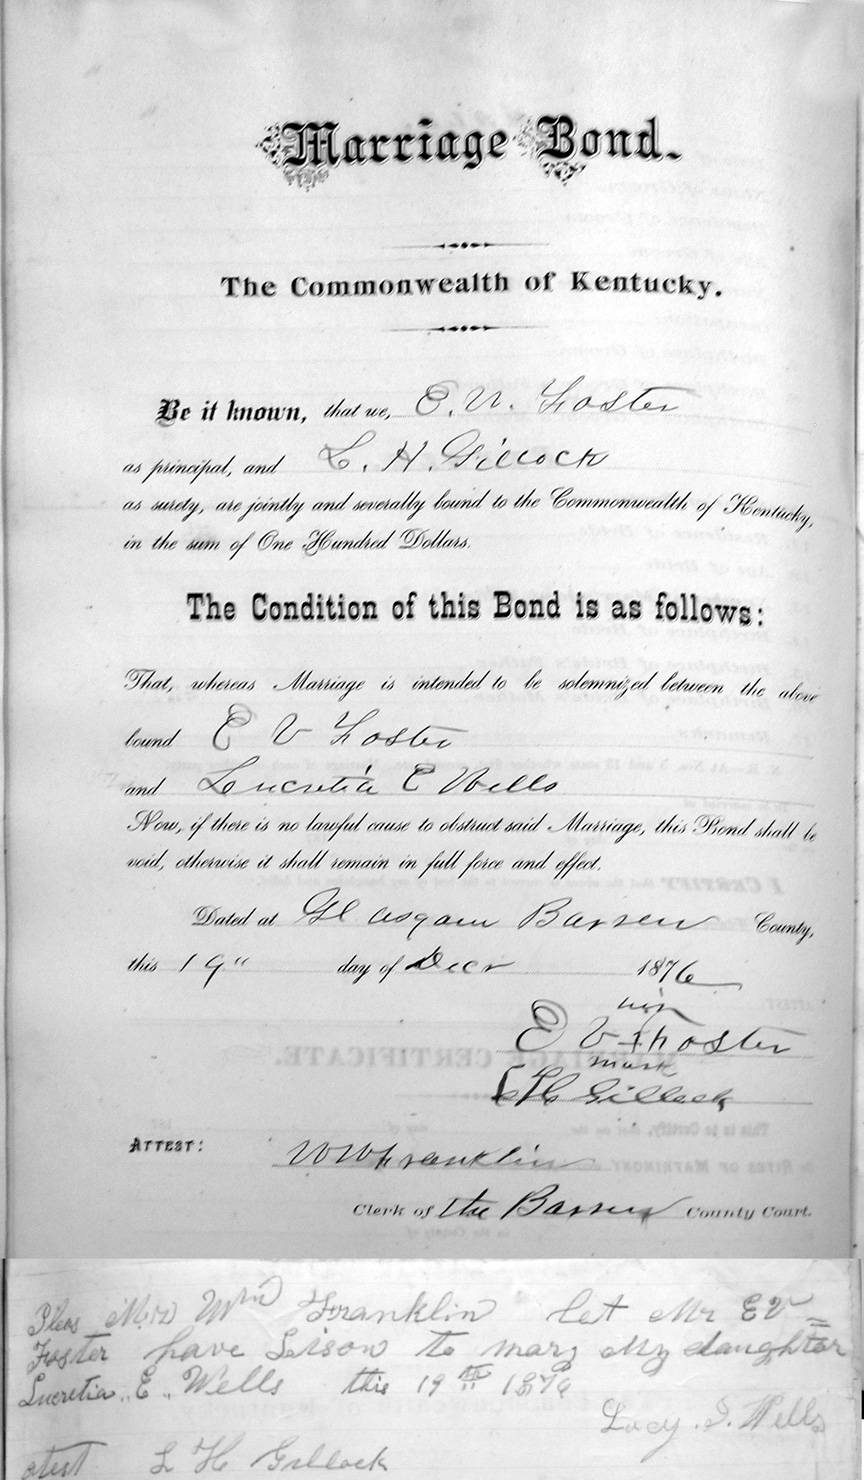 Marriage Bond.
The Commonwealth of Kentucky.
Be it known, that we, E. V. Foster
as principal, and L. H. Gillock
as surety, are jointly and severally bound to the Commonwealth of Kentucky,
in the sum of One Hundred Dollars.
The Condition of this Bond is as follows:
That, whereas Marriage is intended to be solemnized between the above
bound E V Foster
and Lucretia E Wells
Now, if there is no lawful cause to obstruct said Marriage, this Bond shall be
void, otherwise it shall remain in full force and effect.
Dated at Glasgow Barren County,
this 19" day of Decr 1876
his
E V Foster
mark
L H Gillock
ATTEST: W W Franklin
Clerk of the Barren County Court.
Pleas Wm Franklin let Mr E V =
Foster have Lison to mary My daughter
Lucretia "E" Wells this 19th 1876
Lucy. Wells
atest L H Gillock